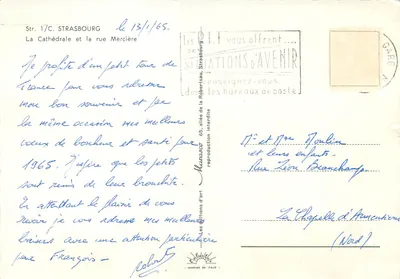 Str. 1/C. STRASBOURG
La Cathédrale et la rue Mercière
le 13/1/65.
Je profite d'un petit tour de
France pour vous adresser
mon bon souvenir et par
la même occasion mes meilleurs
vœux de bonheur et santé pour
1965. J'espère que les petits
sont remis de leur bronchite.
En attendant le plaisir de vous
revoir je vous adresse mes meilleurs
baisers avec une attention particulière
pour François -
les P.T.T vous offrent
SITUATIONS d'AVENIR
renseignez-vous
dans les bureaux de poste
GARE
Les éditions d'art
65, allée de la Robertsau, Strasbourg
reproduction interdite
Mr et Mme Moulin
et leurs enfants
Rue Léon Beauchamp
La Chapelle d'Armentières
(Nord)